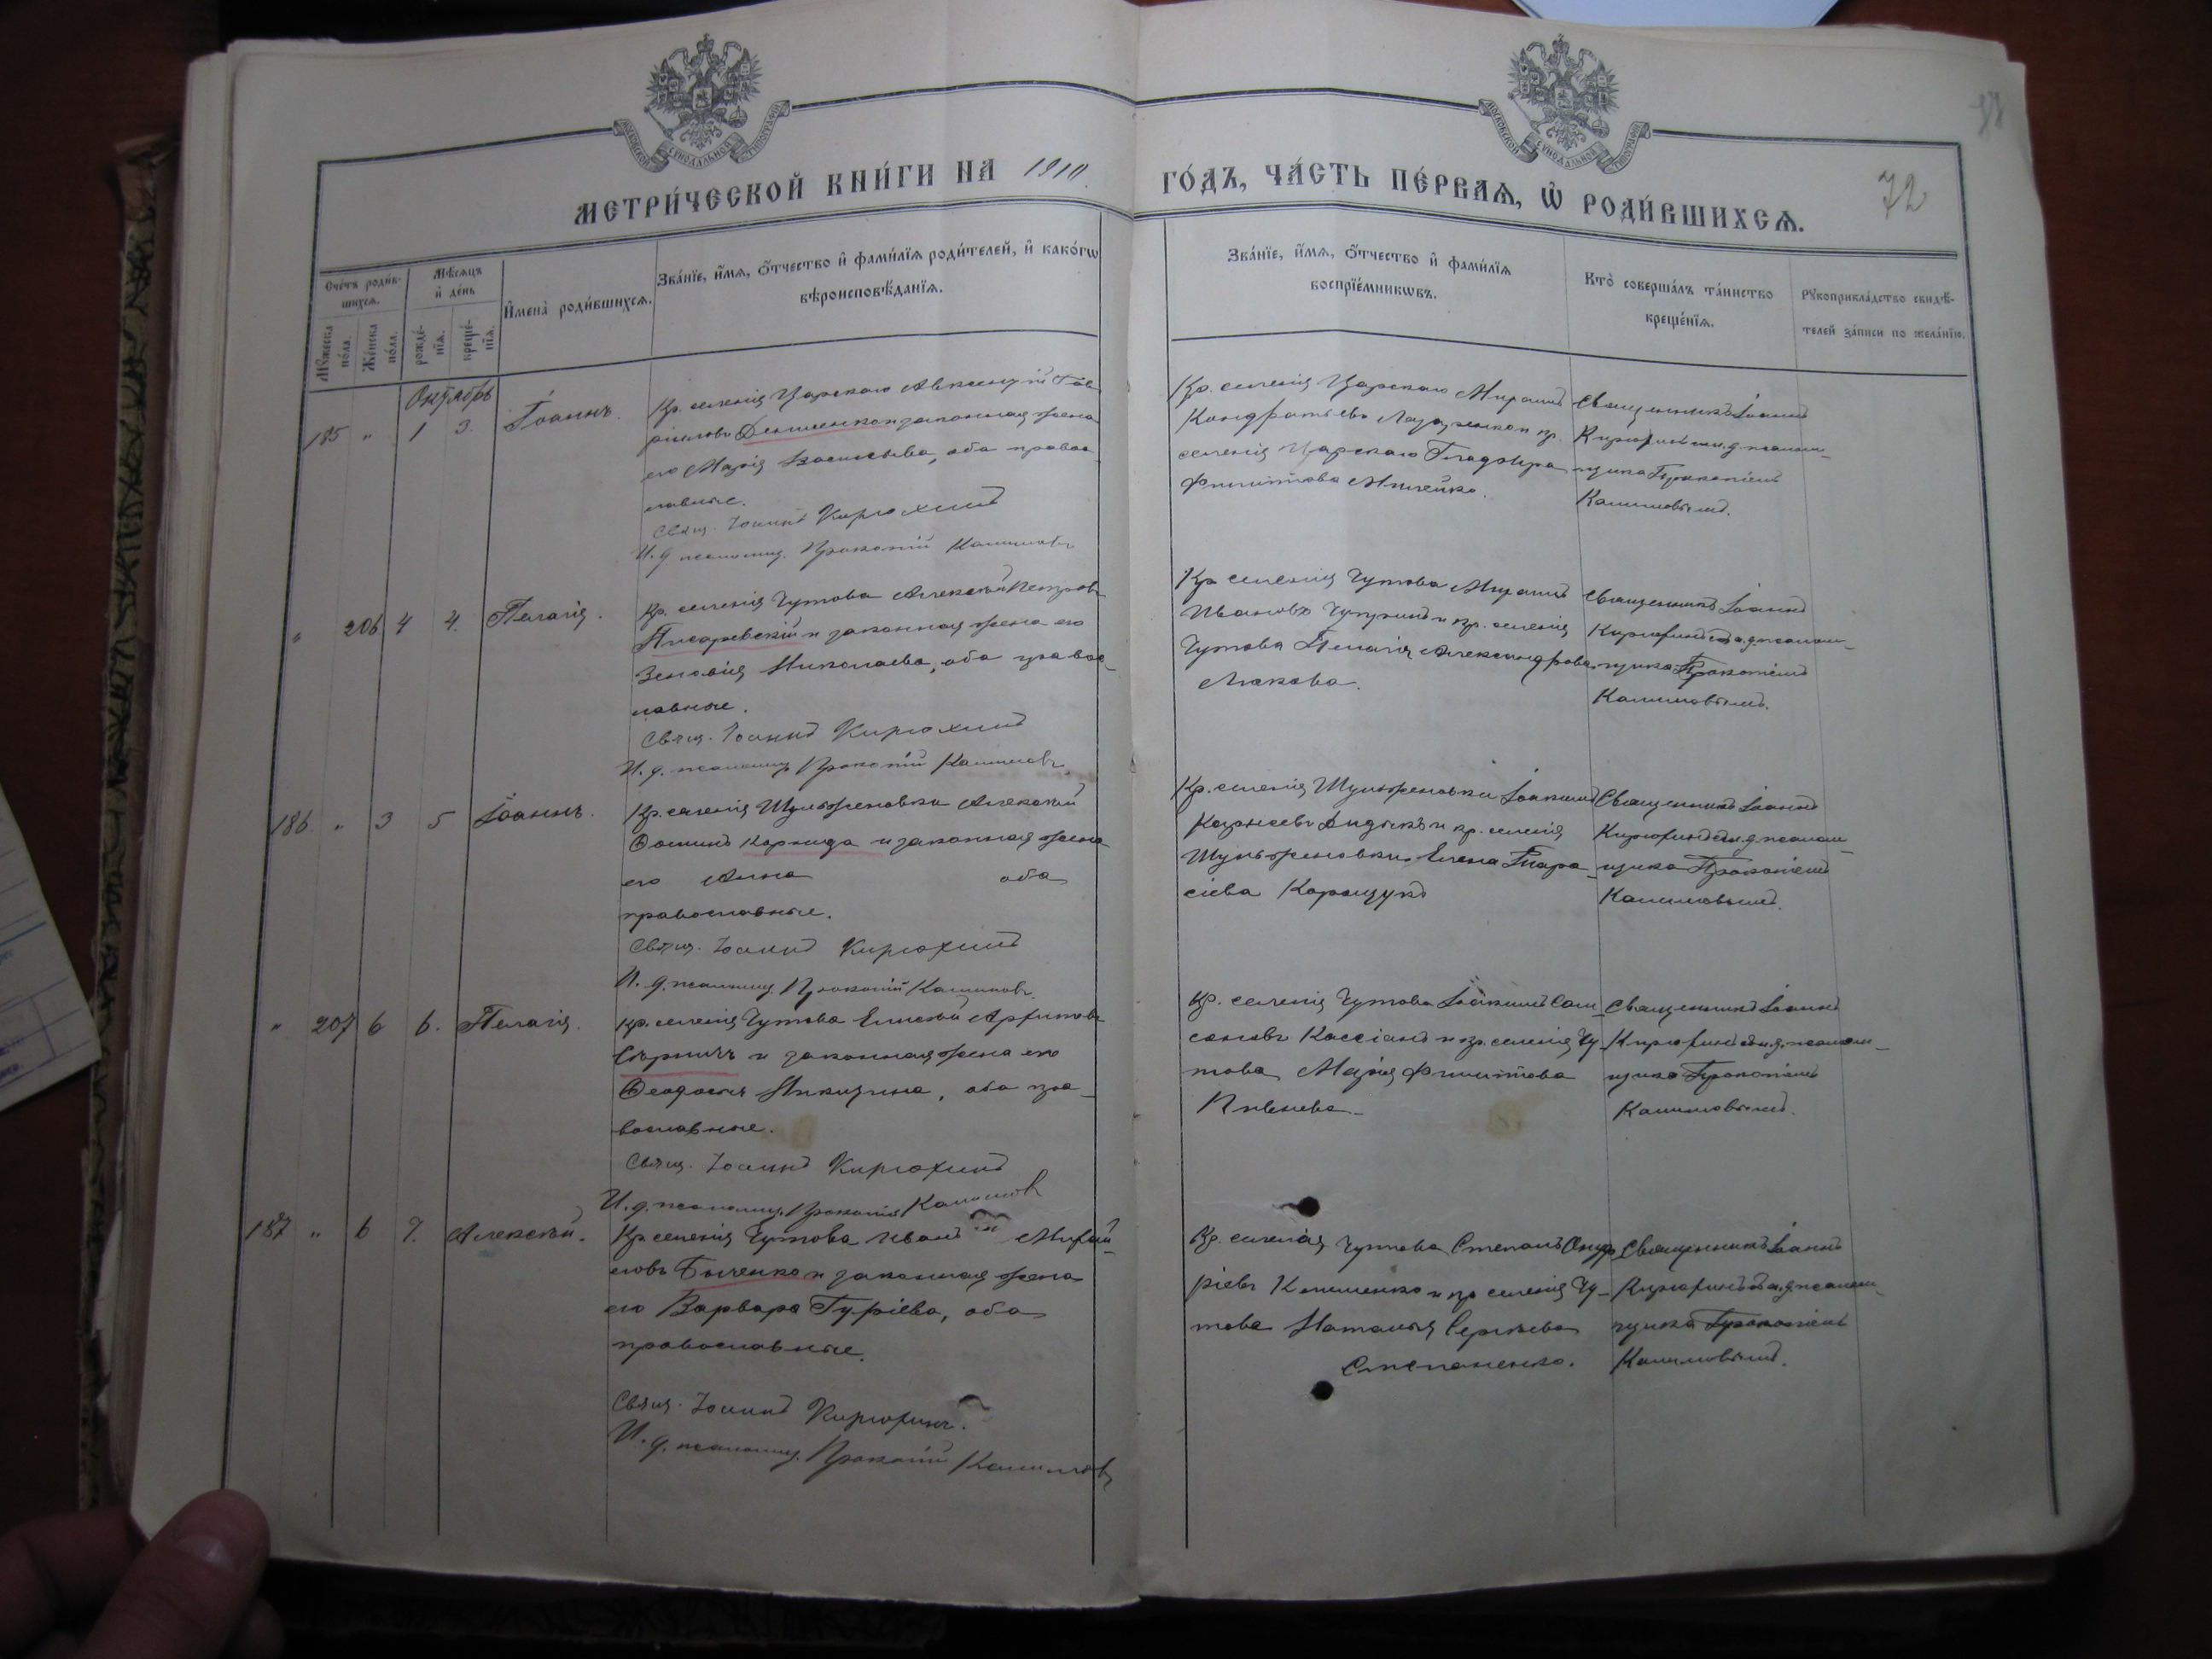 МОСКОВСКОЙ СУНОДАЛЬНОЙ ТИПОГРАФІИ
МОСКОВСКОЙ СУНОДАЛЬНОЙ ТИПОГРАФІИ
МЕТРИ́ЧЕСКОЙ КНИ́ГИ НА 1910
ГО́ДЪ, ЧА́СТЬ ПЕ́РВАѦ, Ѡ РОДИ́ВШИХСѦ.
72
Сче́тъ роди́в-
шихсѧ.
Мꙋ́жеска по́ла.
Же́нска по́ла.
Мѣ́сѧцъ
и҆ де́нь
рожде́-
нїѧ.
креще́-
нїѧ.
И҆мена̀ роди́вшихсѧ.
Зва́нїе, и҆́мѧ, ѻ҆́тчество и҆ фами́лїѧ роди́телей, и҆ како́гѡ
вѣроисповѣ́данїѧ.
Зва́нїе, и҆́мѧ, ѻ҆́тчество и҆ фами́лїѧ
воспрїе́мникѡвъ.
Кто̀ соверша́лъ та́инство
креще́нїѧ.
Рꙋкоприкла́дство свидѣ́-
телей за́писи по жела́нїю.
Октябрь
185 " 1 3. Іоаннъ.
Кр. селенія Царскаго Авксентій Гав
ріиловъ и законная жена
его Марія Васильева, оба правос-
лавные.
Свящ. Іоаннъ Кирюхинъ
И. д. псаломщ. Прокопій Калиновъ
Кр. селенія Царскаго Миронъ
Кондратьевъ и кр.
селенія Царскаго Гликерія
Филиппова
Священникъ Іоаннъ
Кирюхинъ съ и. д. псалом-
щика Прокопіемъ
Калиновымъ.
" 206 4 4. Пелагія.
Кр. селенія Чутова Алексѣй Петровъ
Писаревскій и законная жена его
Зеновія Николаева, оба правос-
лавные.
Свящ. Іоаннъ Кирюхинъ
И. д. псаломщ. Прокопій Калиновъ.
Кр. селенія Чутова
Ивановъ Чупринъ и кр. селенія
Чутова Пелагія Александрова
Лискова.
Священникъ Іоаннъ
Кирюхинъ съ и. д. псалом-
щика Прокопіемъ
Калиновымъ.
186 " 3 5 Іоаннъ.
Кр. селенія Шульженовки Алексій
Ѳоминъ Корнида и законная жена
его Анна оба
православные.
Свящ. Іоаннъ Кирюхинъ
И. д. псаломщ. Прокопій Калиновъ.
Кр. селенія Шульженовки Іоакимъ
Карпъевъ и кр. селенія
Шульженовки Елена Тара-
сіева Корощукъ
Священникъ Іоаннъ
Кирюхинъ съ и. д. псалом-
щика Прокопіемъ
Калиновымъ.
" 207 6 6. Пелагія.
Кр. селенія Чутова Елисѣй
и законная жена его
Ѳеодосія Никитина, оба пра-
вославные.
Свящ. Іоаннъ Кирюхинъ
И. д. псаломщ. Прокопій Калиновъ
Кр. селенія Чутова Іоакимъ Сам-
соновъ Кассіанъ и кр. селенія Чу-
това Марія Филиппова
Пивнева
Священникъ Іоаннъ
Кирюхинъ съ и. д. псалом-
щика Прокопіемъ
Калиновымъ.
187 " 6 7. Алексѣй.
Кр. селенія Чутова Иванъ Михай-
ловъ Бойченко и законная жена
его Варвара Гуріева, оба
православные.
Свящ. Іоаннъ Кирюхинъ.
И. д. псаломщ. Прокопій Калиновъ
Кр. селенія Чутова Степанъ Онуф
ріевъ и кр селенія Чу-
това Наталья Сергѣева
Степаненко.
Священникъ Іоаннъ
Кирюхинъ съ и. д. псалом-
щика Прокопіемъ
Калиновымъ.